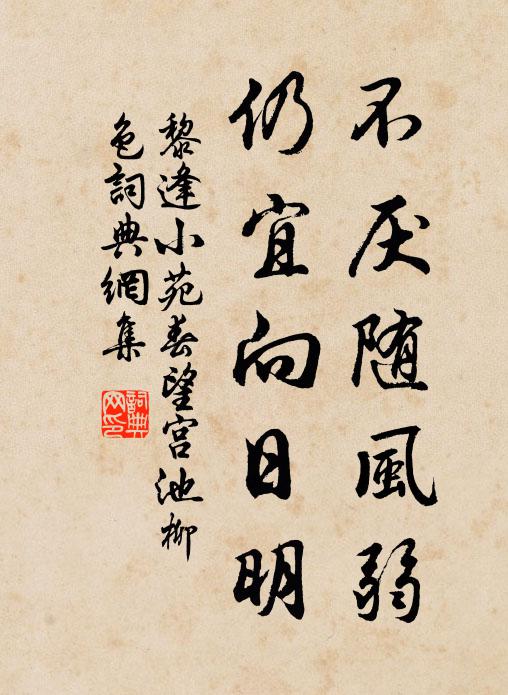 不厌随風弱
仍宜向日明
黎逢小苑春望宫池柳
色詞典網集
詞典
网印